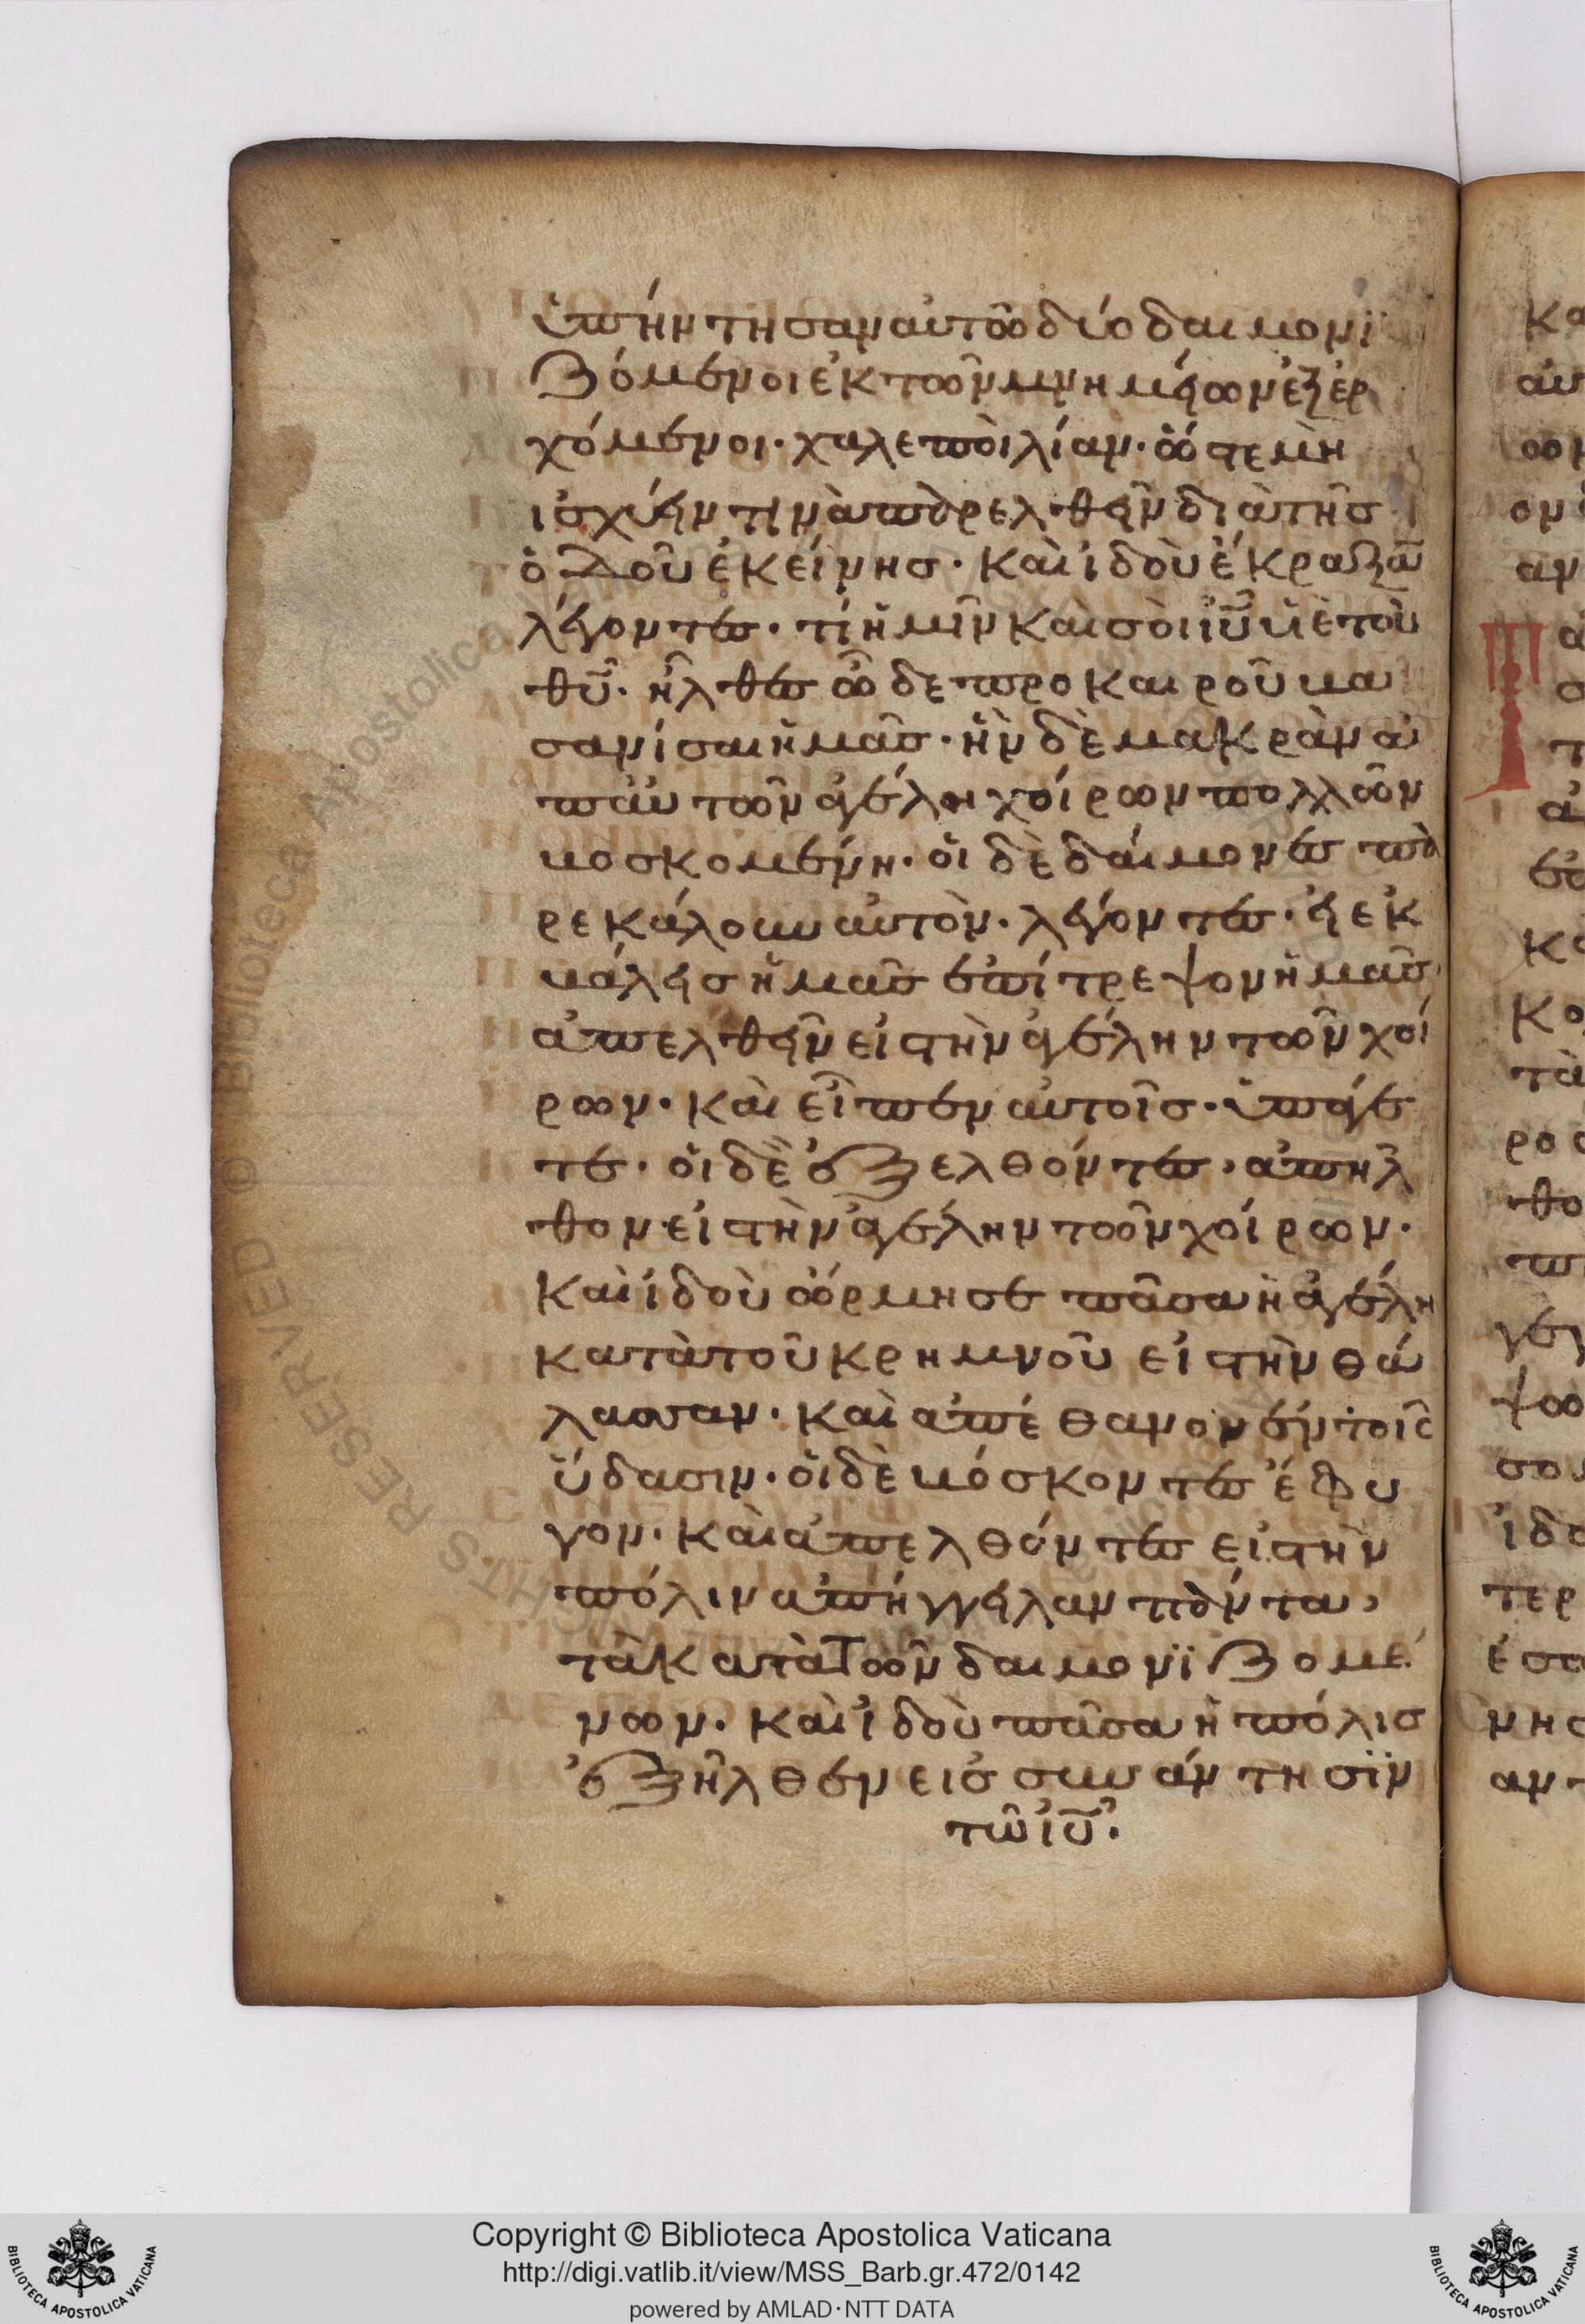 ὑπήντησαν αὐτῶ δύο δαιμονϊ
ζόμενοι ἐκ τῶν μνημείων ἐξερ
χόμενοι· χαλεποὶ λίαν· ὥστε μὴ
ἰσχύειν τινὰ παρελθεῖν διὰ τῆς
ὁδοῦ ἐκείνης· καὶ ἰδοὺ ἔκραξαν
λέγοντες· τί ἡμῖν καὶ σοὶ ἰῦ υἱὲ τοῦ
θῦ· ἦλθες ὧδε προ καιροῦ βα
σανίσαι ἡμᾶς· ἦν δὲ μακρὰν ἀ
π' αὐτῶν ἀγέλη χοίρων πολλῶν
βοσκομένη· οἱ δὲ δαίμονες πα
ρεκάλουν αὐτὸν· λέγοντες· εἰ ἐκ
βάλεις ἡμᾶς ἐπίτρεψον ἡμᾶς
ἀπελθεῖν εἰς τὴν ἀγέλην τῶν χοί
ρων· καὶ εἶπεν αὐτοῖς· ὑπάγε
τε· οἱ δὲ ἐξελθόντες, ἀπῆλ
θον εἰς τὴν ἀγέλην τῶν χοίρων·
καὶ ἰδοὺ ὥρμησε πᾶσα ἡ ἀγέλη
κατὰ τοῦ κρημνοῦ εἰς τὴν θά
λασσαν· καὶ ἀπέθανον ἐν τοῖς
ὕδασιν· οἱ δὲ βόσκοντες ἔφυ
γον· καὶ ἀπελθόντες εἰς τὴν
πόλιν ἀπήγγειλαν πάντα,
τὰ κατὰ τῶν δαιμονϊζομέ
νων· καὶ ἰδοὺ πᾶσα ἡ πόλις
ἐξῆλθεν εἰς συνάντησϊν
τῶ ἰῦ·
Copyright © Biblioteca Apostolica Vaticana
http://digi.vatlib.it/view/MSS_Barb.gr.472/0142
powered by AMLAD·NTT DATA
BIBLIOTECA APOSTOLICA VATICANA
BIBLIOTECA APOSTOLICA VATICANA